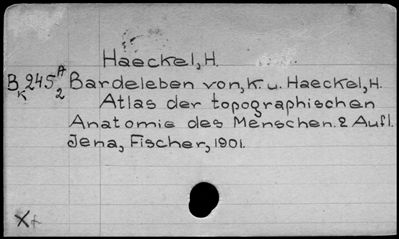 Haeckel, H.
BK 245 A 2 Bardeleben von, K. u. Haeckel, H.
Atlas der topographischen
Anatomie des Menschen. 2 Aufl.
Jena, Fischer, 1901.